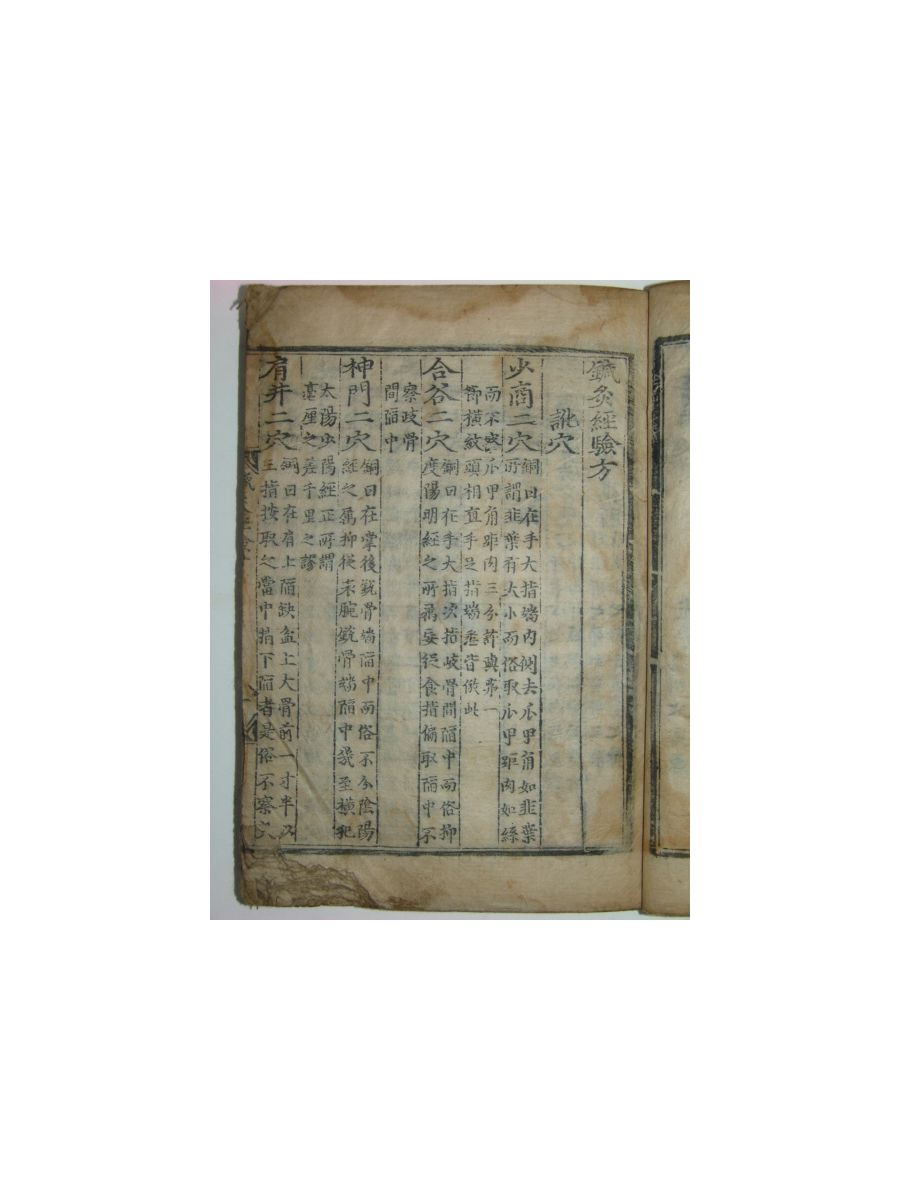 鍼灸經驗方
訛穴
少商二穴 銅曰在手大指端內側去爪甲角如韭葉
所謂韭葉有大小而俗取爪甲距肉如絲
而不察爪甲角距肉三分許與第一
節橫紋頭相直手足指端悉皆倣此
合谷二穴 銅曰在手大指次指岐骨間陷中而俗抑
度陽明經之所屬妄從食指偏取陷中不
察歧骨
間陷中
神門二穴 銅曰在掌後銳骨端陷中而俗不分陰陽
經之屬抑從表腕銳骨端陷中幾至橫犯
太陽少陽經正所謂
毫厘之差千里之謬
肩井二穴 銅曰在肩上陷缺盆上大骨前一寸半以
三指按取之當中指下陷者是俗不察穴